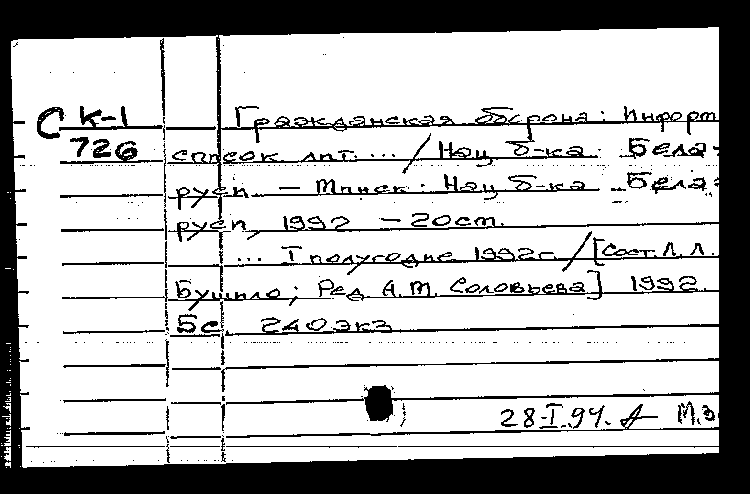 С К-1 Гражданская оборона: Информ
726 список лит. ... / Нац б-ка Бела-
руси - Минск: Нац б-ка Бела-
руси, 1992 - 20см.
... I полугодие 1992г. / [Сост. Л. Л.
Бушило; Ред А.М. Соловьева] 1992.
5с. 240экз
28-I.94. М.З